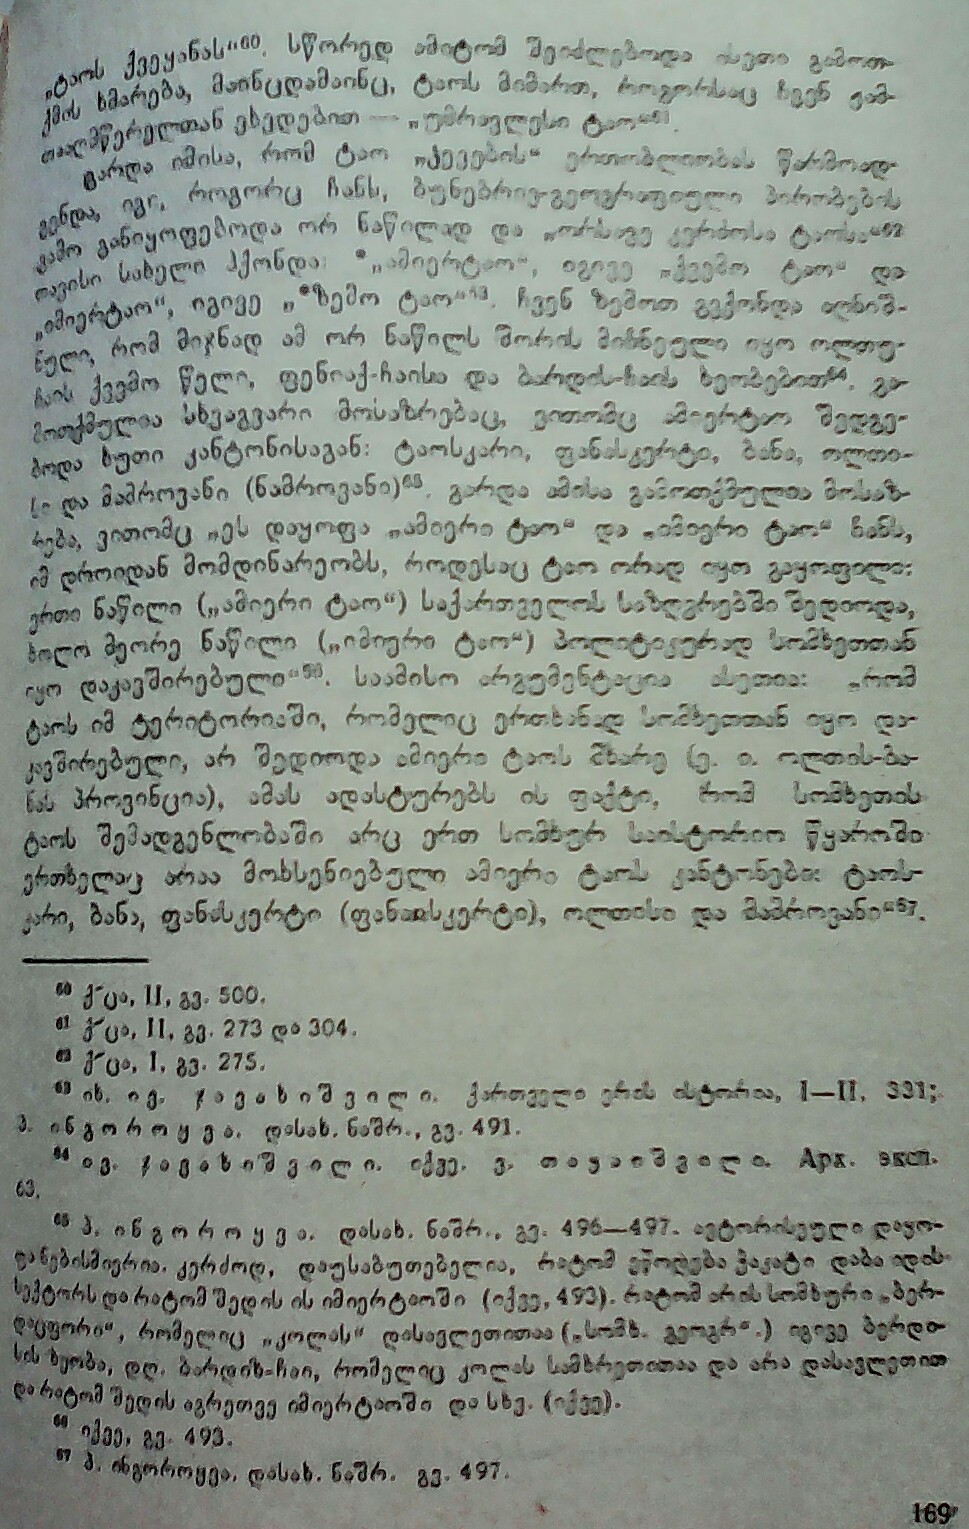 „ტაოს ქვეყანას“⁶⁰. სწორედ ამიტომ შეიძლებოდა ისეთი გამოთ-
ქმის ხმარება, მაინცდამაინც, ტაოს მიმართ, როგორსაც ჩვენ ჟამ-
თააღმწერელთან ვხედებით — „უმრავლესი ტაო“⁶¹.
გარდა იმისა, რომ ტაო „ქვევების“ ერთობლიობას წარმოად-
გენდა, იგი, როგორც ჩანს, ბუნებრივ-გეოგრაფიული პირობების
გამო განიყოფებოდა ორ ნაწილად და „ორსავე კერძოსა ტაოსა“⁶²
თავისი სახელი ჰქონდა: *„ამიერტაო“, იგივე „ქვემო ტაო“ და
„იმიერტაო“, იგივე „*ზემო ტაო“⁶³. ჩვენ ზემოთ გვქონდა აღნიშ-
ნული, რომ მიჯნად ამ ორ ნაწილს შორის მიჩნეული იყო ოლთუ-
ჩაის ქვემო წელი, ფენიაქ-ჩაისა და ბარდის-ჩაის ხეობებით⁶⁴. გა-
მოთქმულია სხვაგვარი მოსაზრებაც, ვითომც ამიერტაო შედგე-
ბოდა ხუთი კანტონისაგან: ტაოსკარი, ფანასკერტი, ბანა, ოლთი-
სი და მამროვანი (ნამროვანი)⁶⁵. გარდა ამისა გამოთქმულია მოსაზ-
რება, ვითომც „ეს დაყოფა „ამიერი ტაო“ და „იმიერი ტაო“ ჩანს,
იმ დროიდან მომდინარეობს, როდესაც ტაო ორად იყო გაყოფილი:
ერთი ნაწილი („ამიერი ტაო“) საქართველოს საზღვრებში შედიოდა,
ხოლო მეორე ნაწილი („იმიერი ტაო“) პოლიტიკურად სომხეთთან
იყო დაკავშირებული“⁶⁶. საამისო არგუმენტაცია ასეთია: „რომ
ტაოს იმ ტერიტორიაში, რომელიც ერთხანად სომხეთთან იყო და-
კავშირებული, არ შედიოდა ამიერი ტაოს მხარე (ე. ი. ოლთის-ბა-
ნას პროვინცია), ამას ადასტურებს ის ფაქტი, რომ სომხეთის
ტაოს შემადგენლობაში არც ერთ სომხურ საისტორიო წყაროში
ერთხელაც არაა მოხსენიებული ამიერი ტაოს კანტონები: ტაოს-
კარი, ბანა, ფანასკერტი (ფანაასკერტი), ოლთისი და მამროვანი“⁶⁷.
⁶⁰ ქ˜ცა, II, გვ. 500.
⁶¹ ქ˜ცა, II, გვ. 273 და 304.
⁶² ქ˜ცა, I, გვ. 275.
⁶³ იხ. ივ. ჯავახიშვილი. ქართველი ერის ისტორია, I—II, 331;
პ. ინგოროყვა. დასახ. ნაშრ., გვ. 491.
⁶⁴ ივ. ჯავახიშვილი. იქვე. ე. თაყაიშვილი. Арх. эксп.
63.
⁶⁵ პ. ინგოროყვა. დასახ. ნაშრ., გვ. 496—497. ავტორისეული დაყო-
ფა ნებისმიერია. კერძოდ, დაუსაბუთებელია, რატომ ეწოდება ჭაკატი დაბა იდის-
სექტორს და რატომ შედის ის იმიერტაოში (იქვე, 493). რატომ არის სომხური „ბერ-
დაცფორი“, რომელიც „კოლას“ დასავლეთითაა („სომხ. გეოგრ“.) იგივე ბერდა-
სის ხეობა, დღ. ბარდიზ-ჩაი, რომელიც კოლას სამხრეთითაა და არა დასავლეთით
და რატომ შედის აგრეთვე იმიერტაოში და სხვ. (იქვე).
⁶⁶ იქვე, გვ. 493.
⁶⁷ პ. ინგოროყვა, დასახ. ნაშრ. გვ. 497.
169